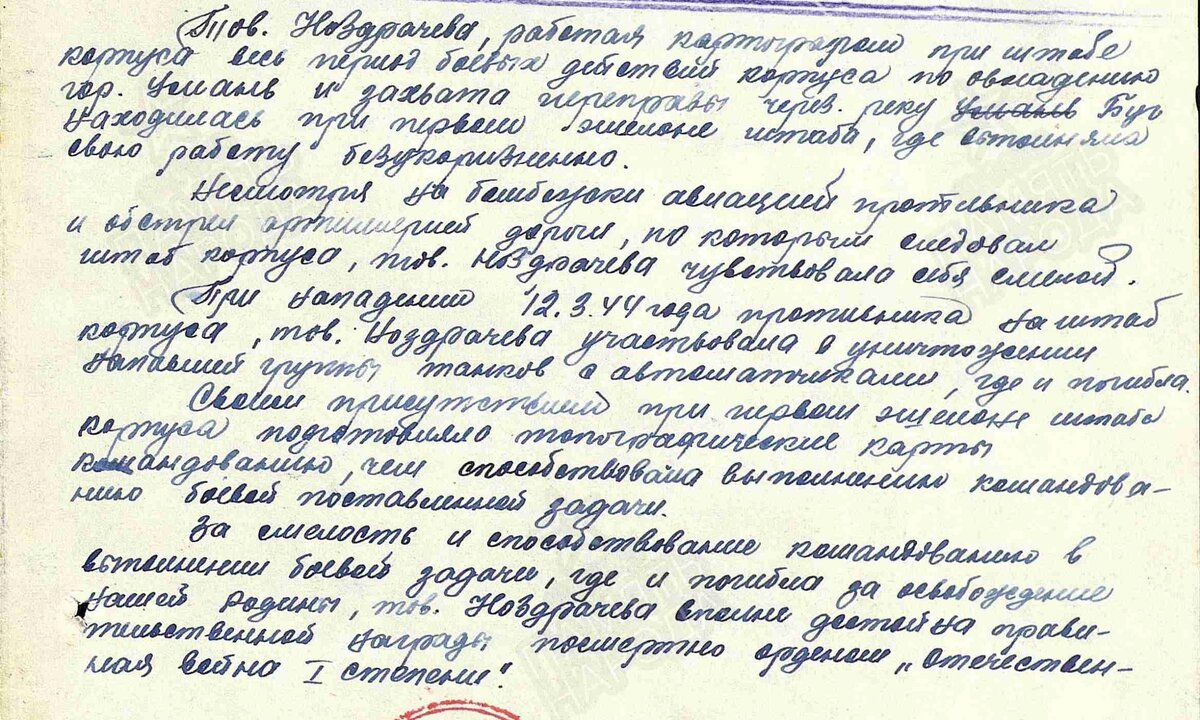 Тов. Ноздрачева, работая картографом при штабе
корпуса весь период боевых действий корпуса по овладению
гор. Умань и захвата переправы через реку Умань Буг
находилась при первом эшелоне штаба, где выполняла
свою работу безукоризненно.
Несмотря на бомбежки авиацией противника
и обстрел артиллерией дороги, по которым следовал
штаб корпуса, тов. Ноздрачева чувствовала себя смелой.
При нападении 12.3.44 года противника на штаб
корпуса, тов. Ноздрачева участвовала в уничтожении
напавшей группы танков с автоматчиками, где и погибла.
Своим присутствием при первом эшелоне штаба
корпуса подготовляло топографические карты
командованию, чем способствовала выполнению командова-
нию боевой поставленной задачи.
За смелость и способствование командованию в
выполнении боевой задачи, где и погибла за освобождение
нашей Родины, тов. Ноздрачева вполне достойна прави-
тельственной награды посмертно орденом „Отечествен-
ная война I степени".